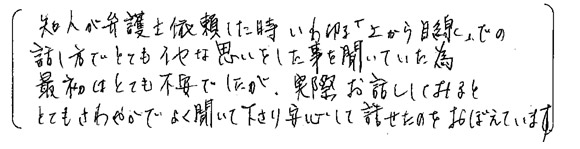 知人が弁護士依頼した時いわゆる「上から目線」での
話し方でとてもイヤな思いをした事を聞いていた為
最初はとても不安でしたが、実際お話ししてみると
とてもさわやかでよく聞いて下さり安心して話せたのをおぼえています